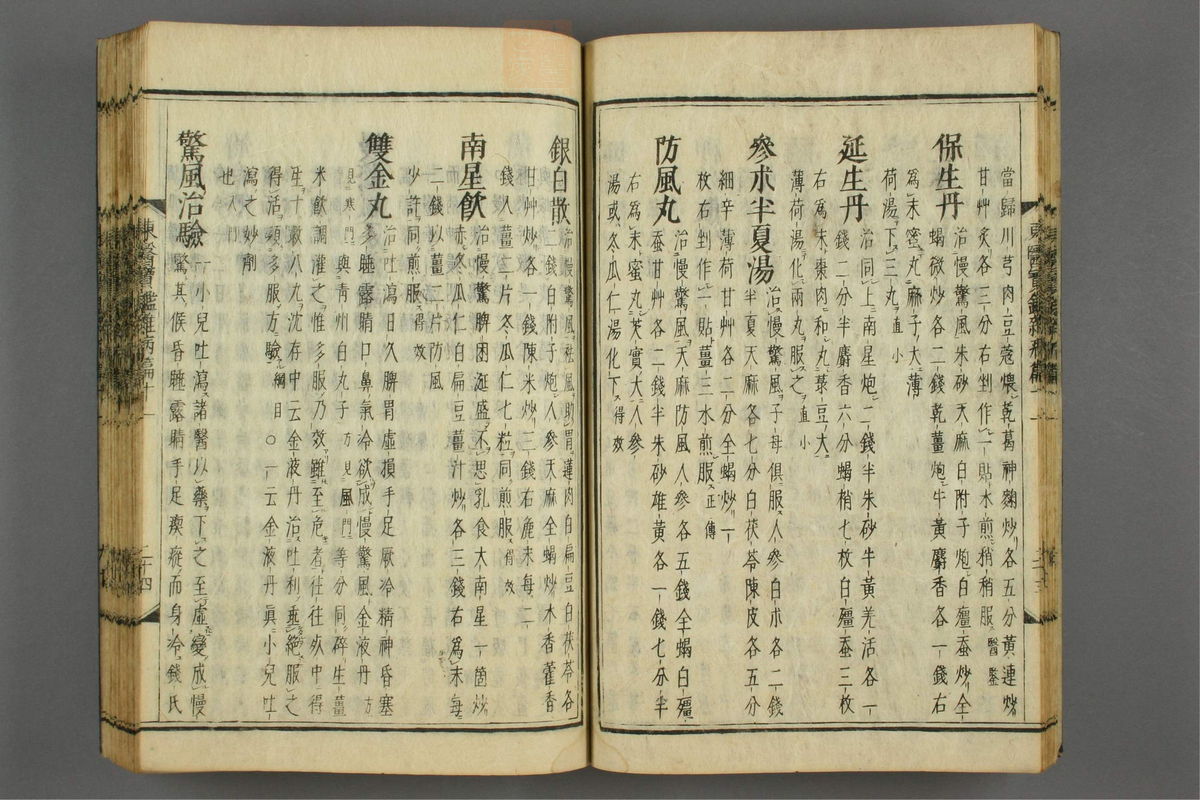 當歸川芎肉豆蔻煨乾葛神麴炒各五分黃連炒
甘艸炙各三分右剉作一貼水煎稍稍服醫鑒
保生丹治慢驚風朱砂天麻白附子炮白殭蚕炒全
蝎微炒各二錢乾薑炮牛黃麝香各一錢右
為末蜜丸麻子大薄
荷湯下三丸直小
延生丹治同上南星炮二錢半朱砂牛黃羌活各一
錢二分半麝香六分蝎梢七枚白殭蚕三枚
右為末棗肉和丸菉豆大
薄荷湯化兩丸服之直小
參朮半夏湯治慢驚風子母俱服人參白朮各二錢
半夏天麻各七分白茯苓陳皮各五分
細辛薄荷甘艸各二分全蝎炒一
枚右剉作一貼薑三水煎服正傳
防風丸治慢驚風天麻防風人參各五錢全蝎白殭
蚕甘艸各二錢半朱砂雄黃各一錢七分半
右為末蜜丸芡實大人參
湯或冬瓜仁湯化下得效
銀白散治慢驚風胃蓮肉白扁豆白茯苓各
二錢白附子炮人參天麻全蝎炒木香藿香
甘艸炒各一錢陳米炒三錢右麁末每二
錢入薑二片冬瓜仁七粒同煎服得效
南星飮治慢驚脾困涎盛不思乳食大南星一箇炒
赤冬瓜仁白扁豆薑汁炒各三錢右為末每
二錢以薑二片防風
少許同煎服得效
雙金丸治吐瀉日久脾胃虛損手足厥冷精神昏塞
多睡露睛口鼻氣冷欲成慢驚風金液丹方
見寒門與青州白丸子方見風門等分同碎生薑
米飮調灌之惟多服乃效雖至危者往往死中得
生十救八九沈存中云金液丹治吐利垂絶服之
得活須多服方驗綱目〇一云金液丹眞小兒吐
瀉之妙劑
也入門
驚風治驗一小兒吐瀉諸醫以藥下之至虛變成慢
驚其候昏睡露睛手足瘈瘲而身冷錢氏
二十四